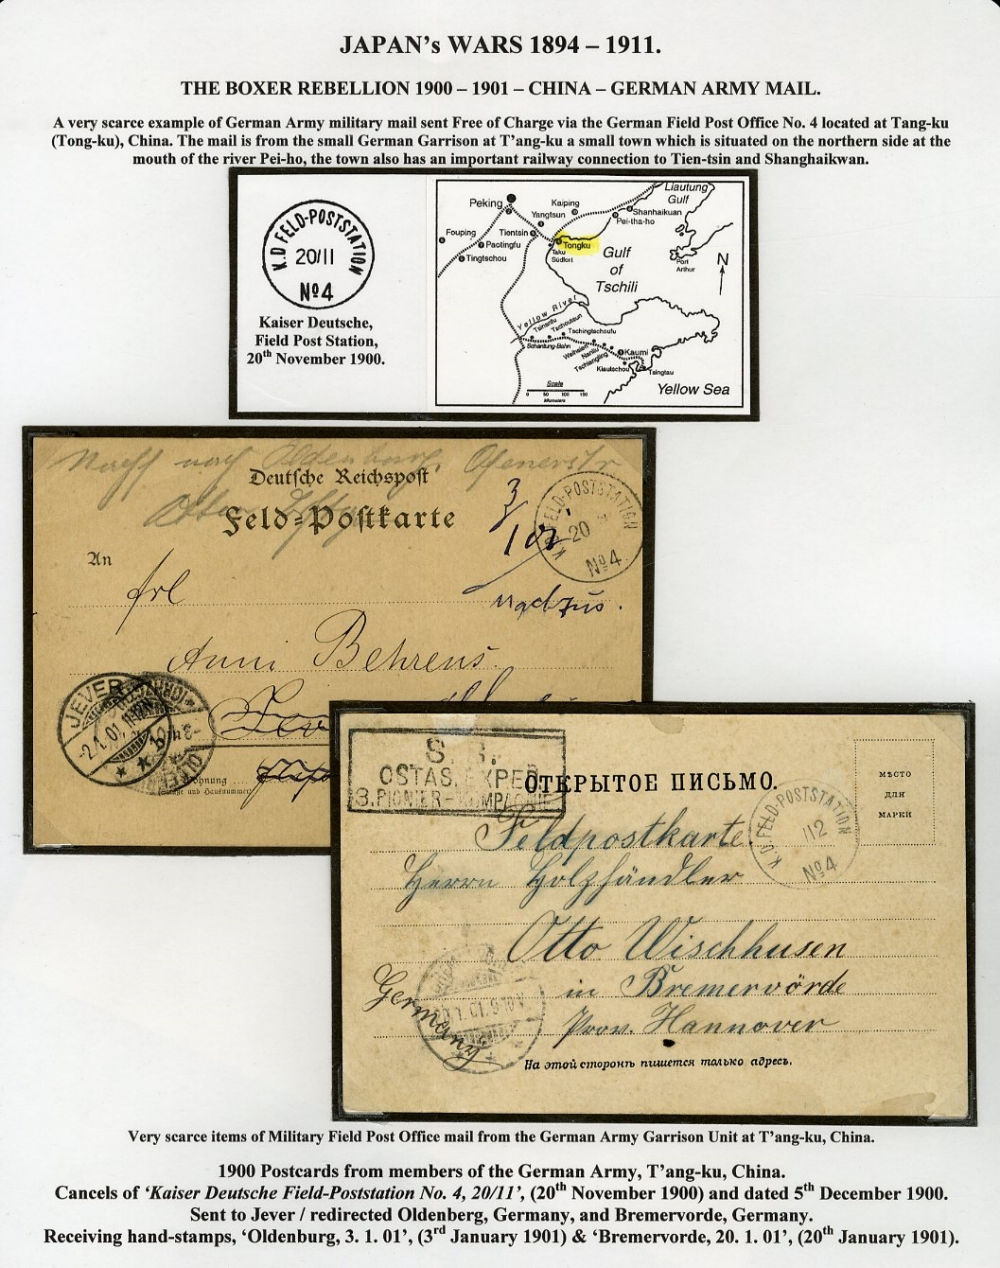 JAPAN's WARS 1894 – 1911.
THE BOXER REBELLION 1900 – 1901 – CHINA – GERMAN ARMY MAIL.
A very scarce example of German Army military mail sent Free of Charge via the German Field Post Office No. 4 located at Tang-ku
(Tong-ku), China. The mail is from the small German Garrison at T'ang-ku a small town which is situated on the northern side at the
mouth of the river Pei-ho, the town also has an important railway connection to Tien-tsin and Shanghaikwan.
K.D FELD-POSTSTATION
20/11
Nº4
Kaiser Deutsche,
Field Post Station,
20th November 1900.
Liautung
Gulf
Peking
Kaiping
Yangtsun
Shanhaikuan
Pei-tha-ho
Fouping
Tientsin
Paotingfu
Tongku
Taku
Südfort
Tingtschou
Gulf
of
Tschili
Port
Arthur
N
Yellow River
Tsinanfu
Tschoutsun
Tschingtschoufu
Schantung-Bahn
Kaumi
Kiautschou
Tsingtau
Scale
0 50 100 150
Yellow Sea
nach Oldenburg,
Deutsche Reichspost
Feld-Postkarte
3/
K.D. FELD-POSTSTATION
20
Nº4
An
frl
Anni Behrens.
JEVER
-2.1.01.
Wohnung
und Hausnummer
S.B.
OSTAS. EXPED
3. PIONIER-KOMPAGNIE
ОТКРЫТОЕ ПИСЬМО.
МѢСТО
ДЛЯ
МАРКИ
K.D. FELD-POSTSTATION
Nº4
Feldpostkarte
Herrn Holzhändler
Otto Wischhusen
in Bremervörde
Prov. Hannover
Germany
.1.01.9-10V.
На этой сторонѣ пишется только адресъ.
Very scarce items of Military Field Post Office mail from the German Army Garrison Unit at T'ang-ku, China.
1900 Postcards from members of the German Army, T'ang-ku, China.
Cancels of 'Kaiser Deutsche Field-Poststation No. 4, 20/11', (20th November 1900) and dated 5th December 1900.
Sent to Jever / redirected Oldenberg, Germany, and Bremervorde, Germany.
Receiving hand-stamps, 'Oldenburg, 3. 1. 01', (3rd January 1901) & 'Bremervorde, 20. 1. 01', (20th January 1901).